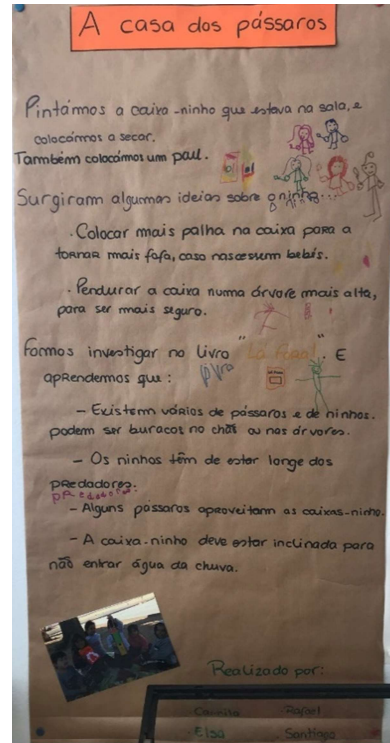 A casa dos pássaros
Pintámos a caixa-ninho que estava na sala, e
colocámos a secar.
Também colocámos um paul.
Surgiram algumas ideias sobre o ninho...
o ninho
· Colocar mais palha na caixa para a
tornar mais fofa, caso nascessem bebés.
· Pendurar a caixa numa árvore mais alta,
para ser mais seguro.
Fomos investigar no livro "Lá Fora". E
aprendemos que:
- Existem vários de pássaros e de ninhos.
podem ser buracos no chão ou nas árvores.
- Os ninhos têm de estar longe dos
predadores.
predadores
- Alguns pássaros aproveitam as caixas-ninho.
- A caixa-ninho deve estar inclinada para
não entrar água da chuva.
Realizado por:
Camila Rafael
Elsa Santiago